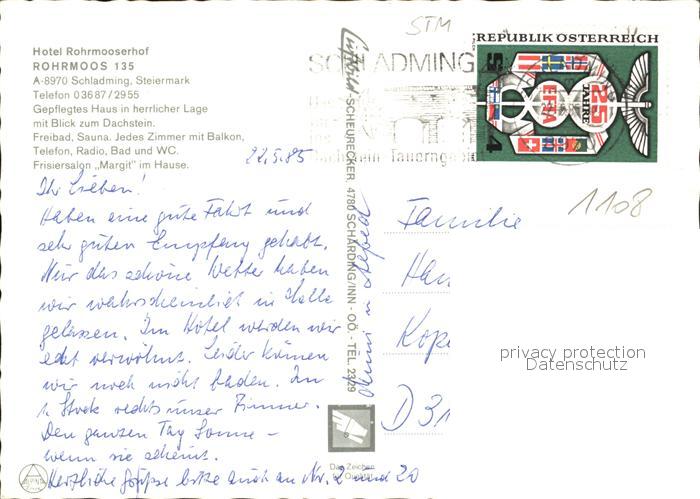 Hotel Rohrmooserhof
ROHRMOOS 135
A-8970 Schladming, Steiermark
Telefon 03687/2955
Gepflegtes Haus in herrlicher Lage
mit Blick zum Dachstein.
Freibad, Sauna. Jedes Zimmer mit Balkon,
Telefon, Radio, Bad und WC.
Frisiersalon „Margit" im Hause.
22.5.85
Ihr Lieben!
Haben eine gute Fahrt und
sehr guten Empfang gehabt.
Nur das schöne Wetter haben
wir wahrscheinlich in Halle
gelassen. Im Hotel werden wir
echt verwöhnt. Leider können
wir noch nicht baden. Im
1. Stock rechts unser Zimmer.
Den ganzen Tag Sonne –
wenn sie scheint.
Herzliche Grüße bitte auch an Nr. 2 und 20
Luftbild SCHEURECKER 4780 SCHÄRDING/INN - OÖ. - TEL. 2329
STM
SCHLADMING
Tauern
REPUBLIK ÖSTERREICH
S 4
25 JAHRE
EFTA
1108
Familie
Han
Kope
D 31
privacy protection
Datenschutz
Das Zeichen
für Qualität